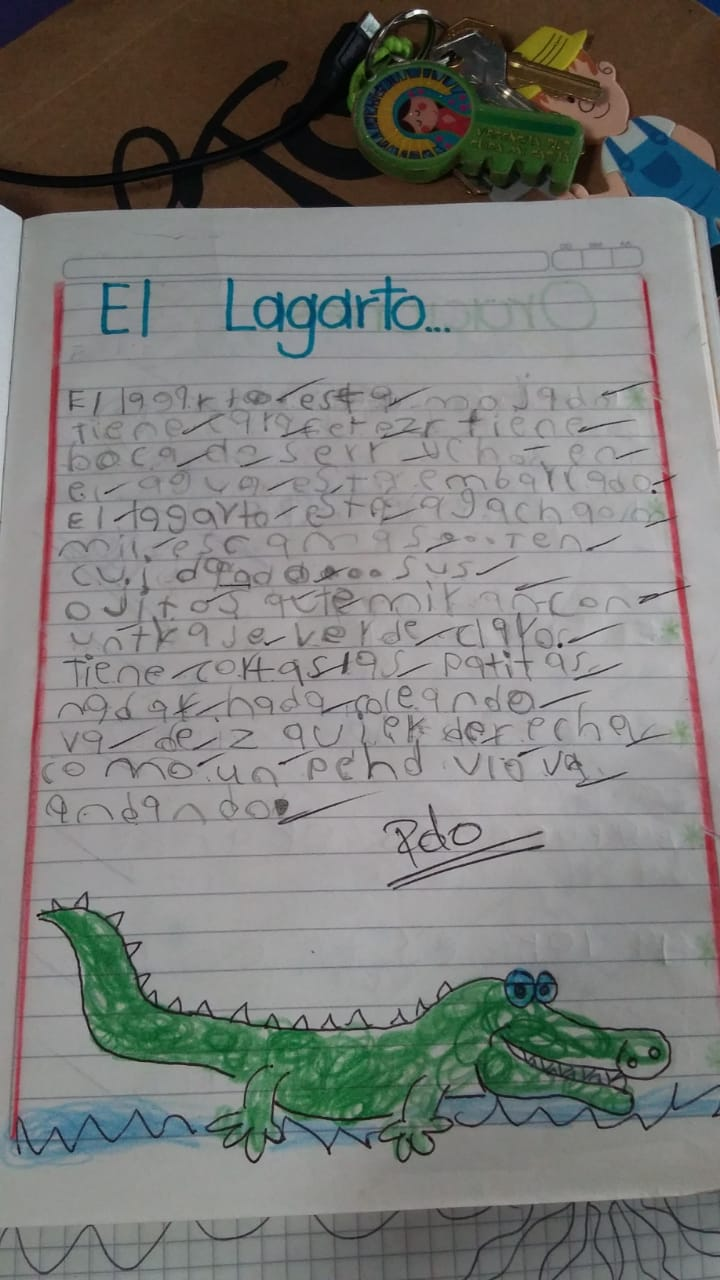 El Lagarto...
El lagarto esta mojado
tiene tiene
boca de serrucho en
el agua esta embarcado.
El lagarto esta agachado
mil escamas ten
cuidado sus
ojitos que miran con
untraje verde claro.
Tiene cortas las patitas
nadar nada coleando
va de izquier derecha
como un pendulo va
andando
Rdo